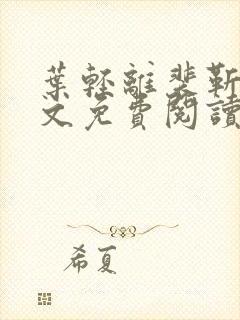 葉輕離裴靳
文免費閱讀
希夏